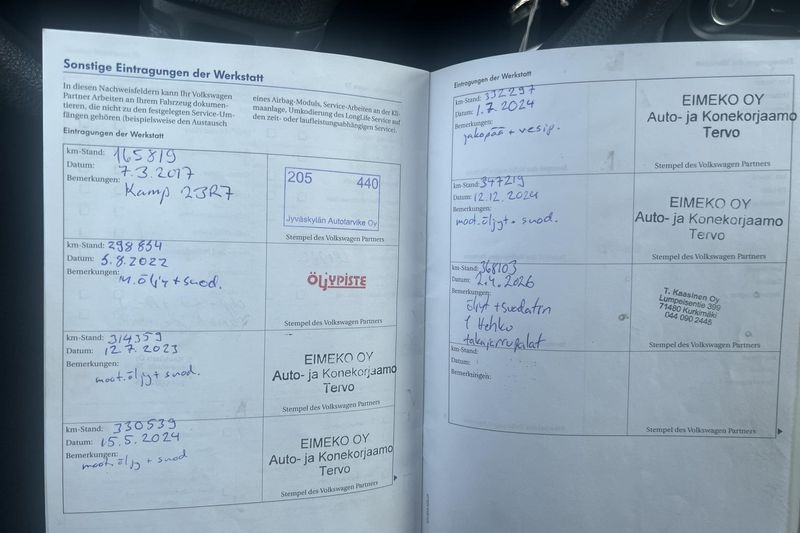 Sonstige Eintragungen der Werkstatt
In diesen Nachweisfeldern kann Ihr Volkswagen
Partner Arbeiten an Ihrem Fahrzeug dokumen-
tieren, die nicht zu den festgelegten Service-Um-
fängen gehören (beispielsweise den Austausch
eines Airbag-Moduls, Service-Arbeiten an der Kli-
maanlage, Umkodierung des LongLife Service auf
den zeit- oder laufleistungsabhängigen Service).
Eintragungen der Werkstatt
km-Stand: 165819
Datum: 7.3.2017
Bemerkungen: Kamp 23R7
205 440
Jyväskylän Autotarvike Oy
Stempel des Volkswagen Partners
km-Stand: 298854
Datum: 5.8.2022
Bemerkungen: M.öljy + suod.
ÖLJYPISTE
Stempel des Volkswagen Partners
km-Stand: 314359
Datum: 12.7.2023
Bemerkungen: moot.öljyt + suod.
EIMEKO OY
Auto- ja Konekorjaamo
Tervo
Stempel des Volkswagen Partners
km-Stand: 330539
Datum: 15.5.2024
Bemerkungen: moot.öljy + suod
EIMEKO OY
Auto- ja Konekorjaamo
Tervo
Stempel des Volkswagen Partners
Eintragungen der Werkstatt
km-Stand: 332297
Datum: 1.7.2024
Bemerkungen:
jakopää + vesip.
EIMEKO OY
Auto- ja Konekorjaamo
Tervo
Stempel des Volkswagen Partners
km-Stand: 347219
Datum: 12.12.2024
Bemerkungen:
moot.öljyt + suod.
EIMEKO OY
Auto- ja Konekorjaamo
Tervo
Stempel des Volkswagen Partners
km-Stand: 368103
Datum: 2.4.2026
Bemerkungen:
öljyt + suodatin
1 Hehko
takajarrupalat
T. Kaasinen Oy
Lumpeisentie 399
71480 Kurkimäki
044 090 2445
Stempel des Volkswagen Partners
km-Stand:
Datum:
Bemerkungen:
Stempel des Volkswagen Partners